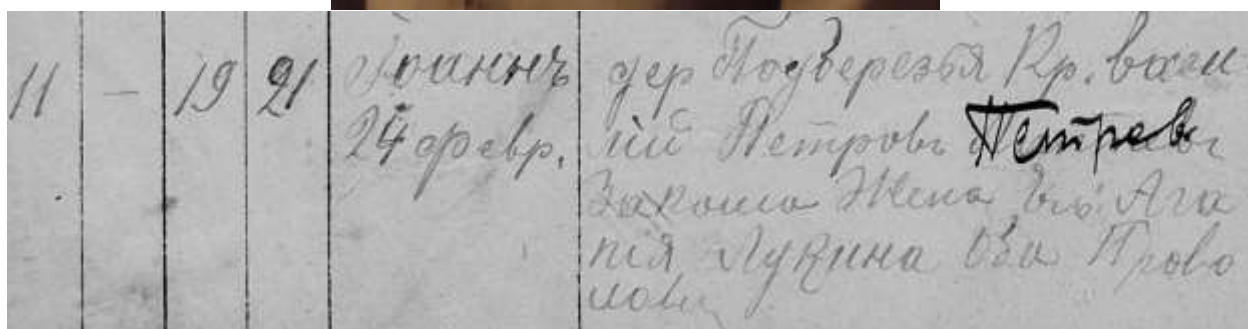 11 — 19 21 Іоаннъ дер Подберезья Кр. васи-
24 февр. лій Петровъ Петровъ
Законная Жена Его Ага
пія Лукина Оба Право
славн